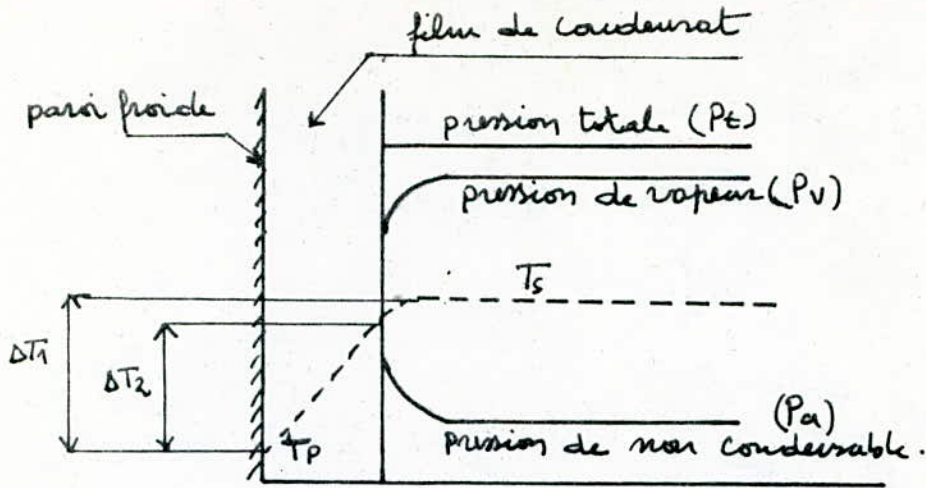 film de condensat
paroi froide
pression totale (Pt)
pression de vapeur (Pv)
Ts
ΔT1
ΔT2
(Pa)
TP
pression de non condensable.